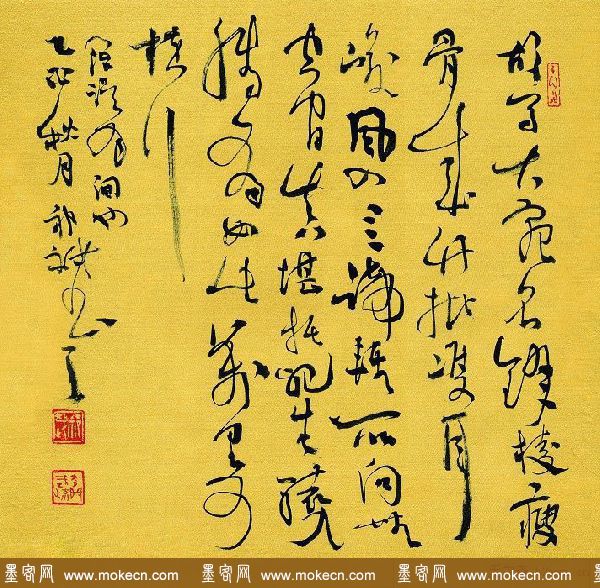 胡馬大宛名鋒棱瘦
骨成竹批雙耳
峻風入四蹄輕所向無
空闊真堪托死生驍
騰有如此萬里可
橫行
秋月
墨客网 www.mokecn.com 墨客网 www.mokecn.com 墨客网 www.mokecn.com